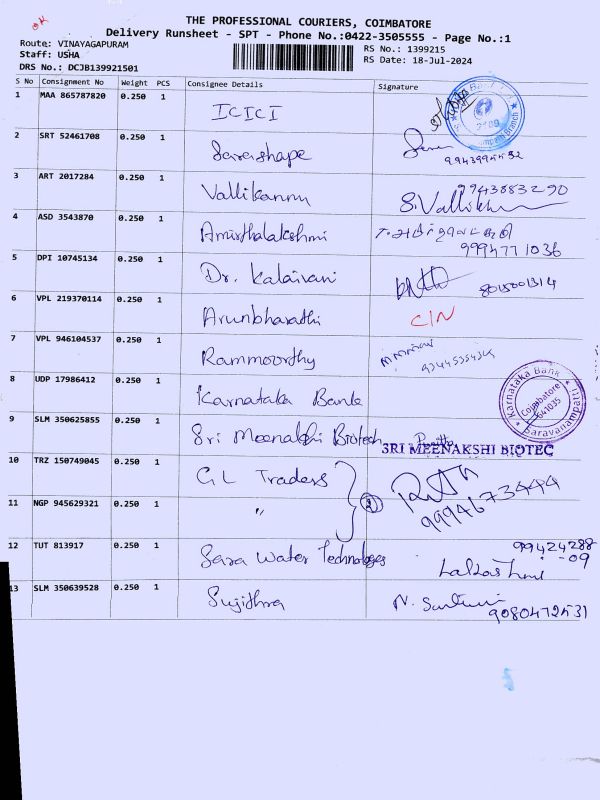 OK
THE PROFESSIONAL COURIERS, COIMBATORE
Delivery Runsheet - SPT - Phone No.:0422-3505555 - Page No.:1
Route: VINAYAGAPURAM
Staff: USHA
DRS No.: DCJB139921501
RS No.: 1399215
RS Date: 18-Jul-2024
S No Consignment No Weight PCS Consignee Details Signature
1 MAA 865787820 0.250 1 ICICI
2 SRT 52461708 0.250 1 Sarashape
3 ART 2017284 0.250 1 Vallikannu 9943883290
S.Vallikannu
4 ASD 3543870 0.250 1 Amirthalakshmi
9994771036
5 DPI 10745134 0.250 1 Dr. Kalaivani
6 VPL 219370114 0.250 1 Arunbharathi C/N
7 VPL 946104537 0.250 1 Rammoorthy
8 UDP 17986412 0.250 1 Karnataka Bank
Karnataka Bank
Coimbatore
641035
Saravanampatti
9 SLM 350625855 0.250 1 Sri Meenakshi Biotech
SRI MEENAKSHI BIOTEC
10 TRZ 150749045 0.250 1 GL Traders
11 NGP 945629321 0.250 1 " 2
12 TUT 813917 0.250 1 Sara Water Technologies 99424288
-09
13 SLM 350639528 0.250 1 Sujithra
9080472531